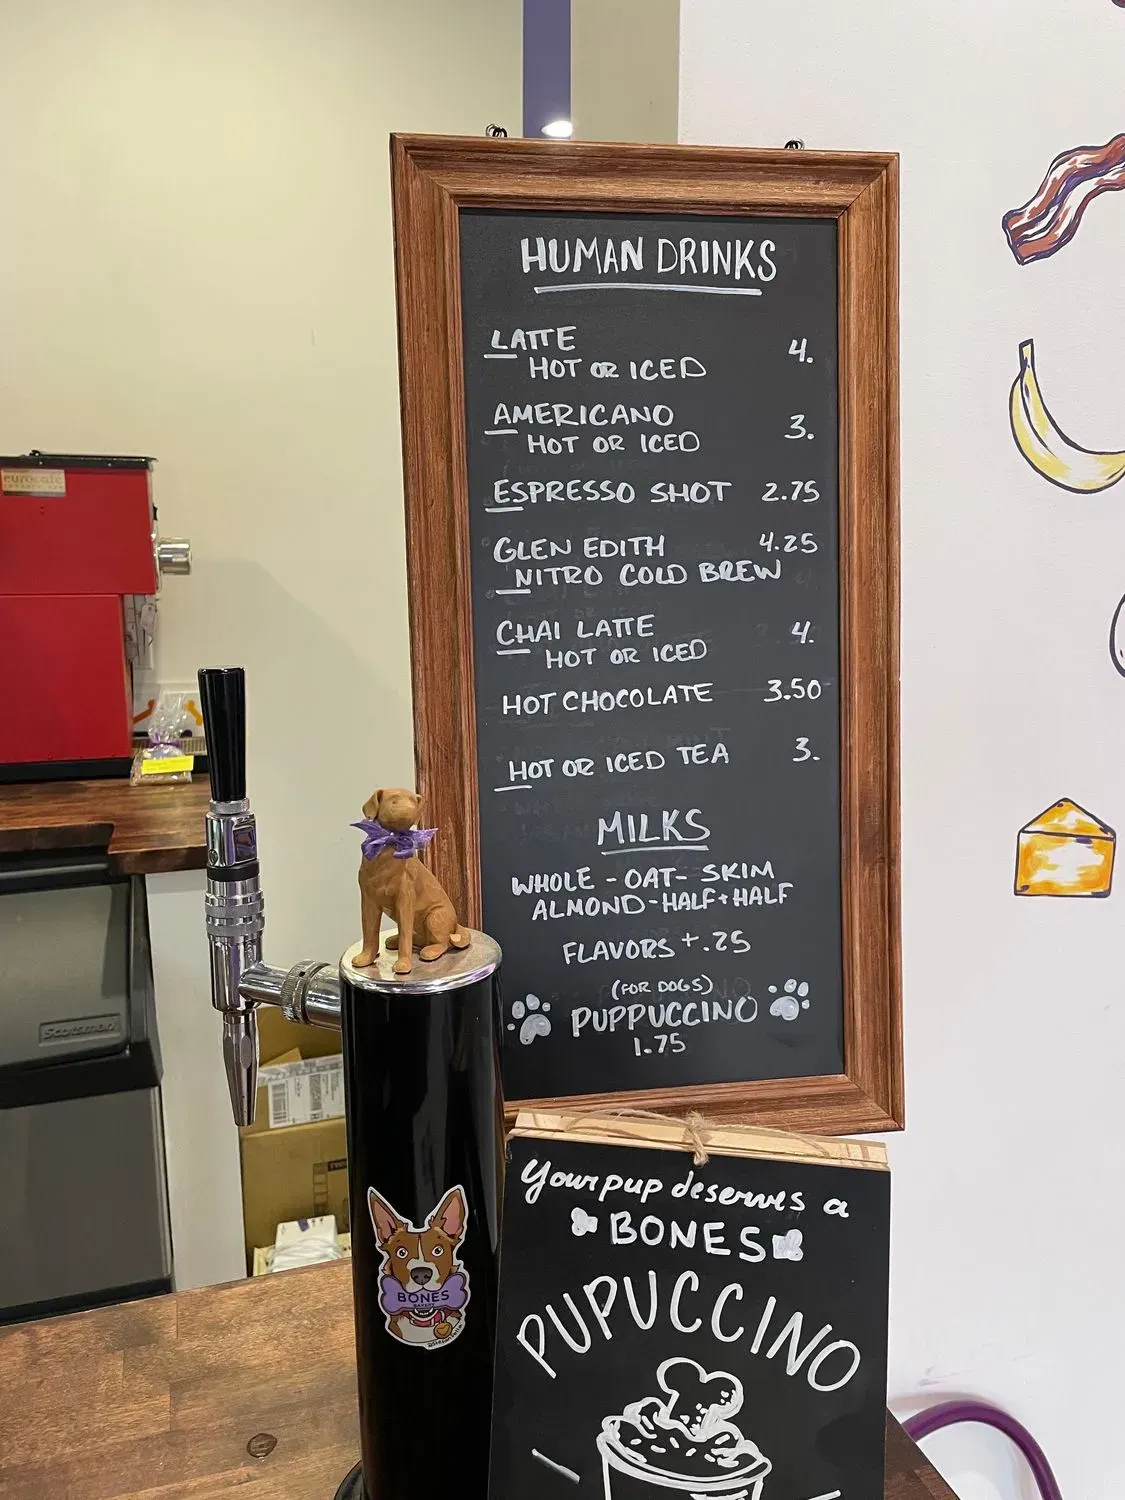 HUMAN DRINKS
LATTE 4.
HOT OR ICED
AMERICANO 3.
HOT OR ICED
ESPRESSO SHOT 2.75
GLEN EDITH 4.25
NITRO COLD BREW
CHAI LATTE 4.
HOT OR ICED
HOT CHOCOLATE 3.50
HOT OR ICED TEA 3.
MILKS
WHOLE - OAT - SKIM
ALMOND - HALF + HALF
FLAVORS +.25
(FOR DOGS)
PUPPUCCINO
1.75
Your pup deserves a
BONES
PUPUCCINO
BONES
BAKERY
eurocafé
Scotsman